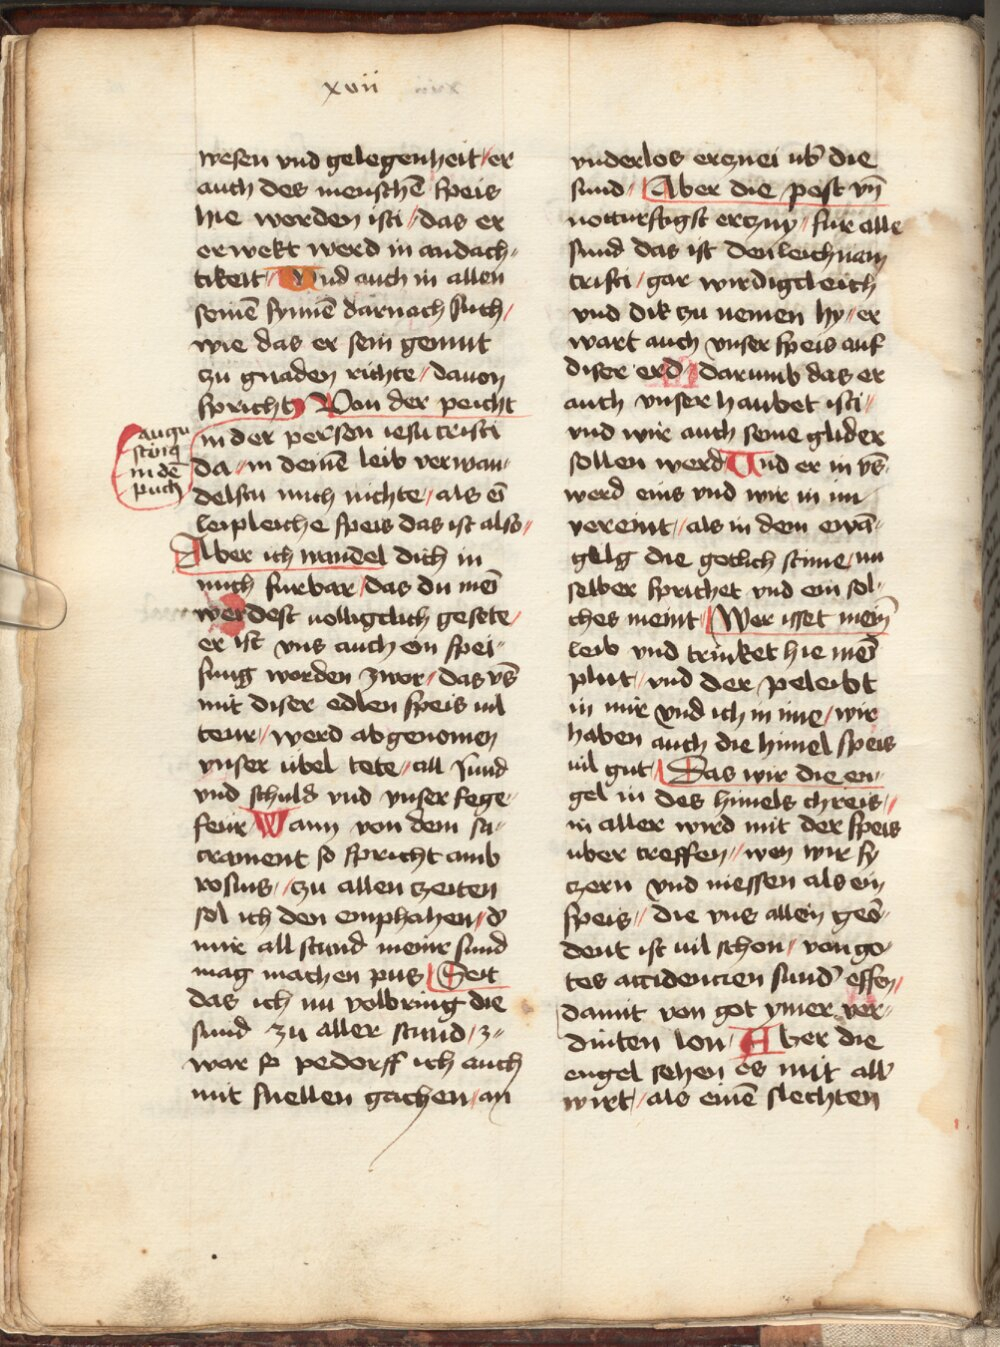 xvii
wesen vnd gelegenheit / er
auch des menschē speis
hie worden isti / das er
erwekt werd in andach-
tikeit / Vnd auch in allen
seinē synnē darnach such /
wie das er sein gemut
zu gnaden richte / dauon
spricht Von der peicht
augu
stūs
in dē
puch
in der person iesu cristi
da / in deinē leib verwan-
delstu mich nichte / als eī
leipleiche speis das ist also /
Aber ich wandel dich in
mich furbar / das du meī
werdest volligclich gesete /
er ist vns auch ein spei-
sung worden zwor / das vs̄
mit diser edlen speis uil
teur / werd abgenomen
vnser ubel tete / all sund
vnd schuld vnd vnser fege-
feur Wann von dem sa-
crament so spricht amb
rosius / zu allen czeiten
sol ich den emphahen / d'
mir all stund meinr sund
mag machen pus Seit
das ich nu volbring die
sund zu aller stund / z-
war so pedorff ich auch
mit snellen gachen / an
vnderlos erznei ub' die
sund / Aber die pest vn̄
notturftigst erczny / fur alle
sund das ist den leichnam
cristi / gar wirdigcleich
vnd dik zu nemen hy / er
wart auch vnser speis auf
diser erd / darumb das er
auch vnser haubet isti /
vnd wir auch seine glider
sollen werd Vnd er in vs̄
werd eins vnd wir in im
vereint / als in dem ewā-
gelg die gotlich stime / nu
selber sprichet vnd ein sol-
ches meint / Wer isset mein
leib vnd trinket hie meī
plut / vnd der peleibt
in mir vnd ich in ime / wir
haben auch die himel speis
uil gut / Das wir die en-
gel in des himels chreis /
in aller wird mit der speis
uber treffen / wen wir sy
czern vnd niessen als ein
speis / die vns allein
dent ist uil schon / von go-
tes accidencien sund' essen /
damit von got ymer ver-
dinten lon / Aber die
engel sehen es mit all'
wirt / als einē slechten